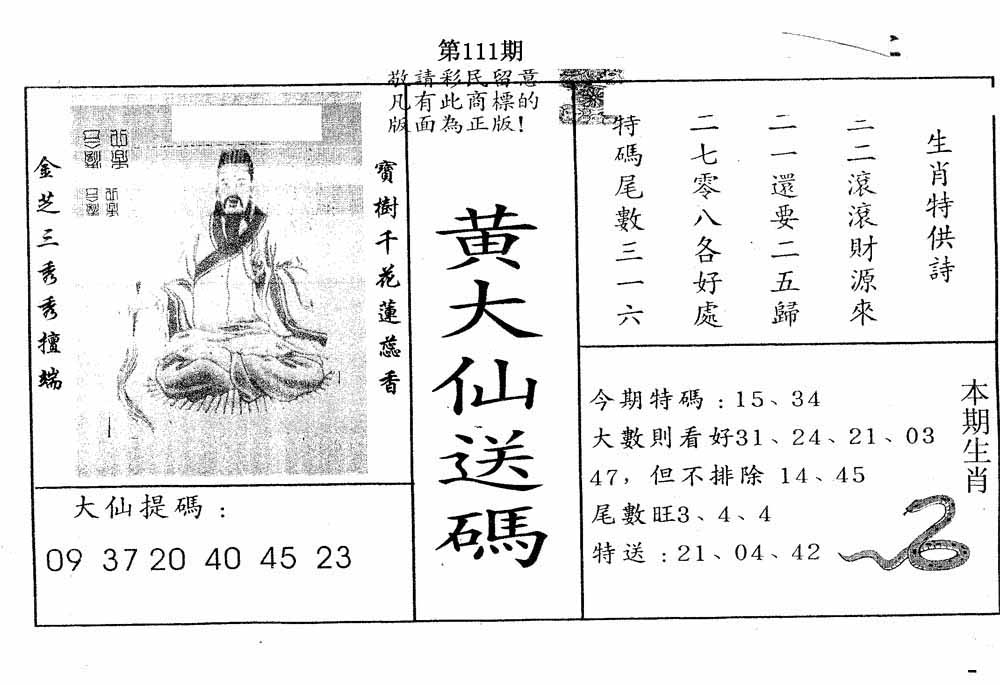 第111期
敬請彩民留意
凡有此商標的
版面為正版!
寶樹千花蓮蕊香
金芝三秀秀擅端
大仙提碼：
09 37 20 40 45 23
黃大仙送碼
生肖特供詩
二二滾滾財源來
二一還要二五歸
二七零八各好處
特碼尾數三一六
本期生肖
今期特碼：15、34
大數則看好31、24、21、03
47，但不排除 14、45
尾數旺3、4、4
特送：21、04、42